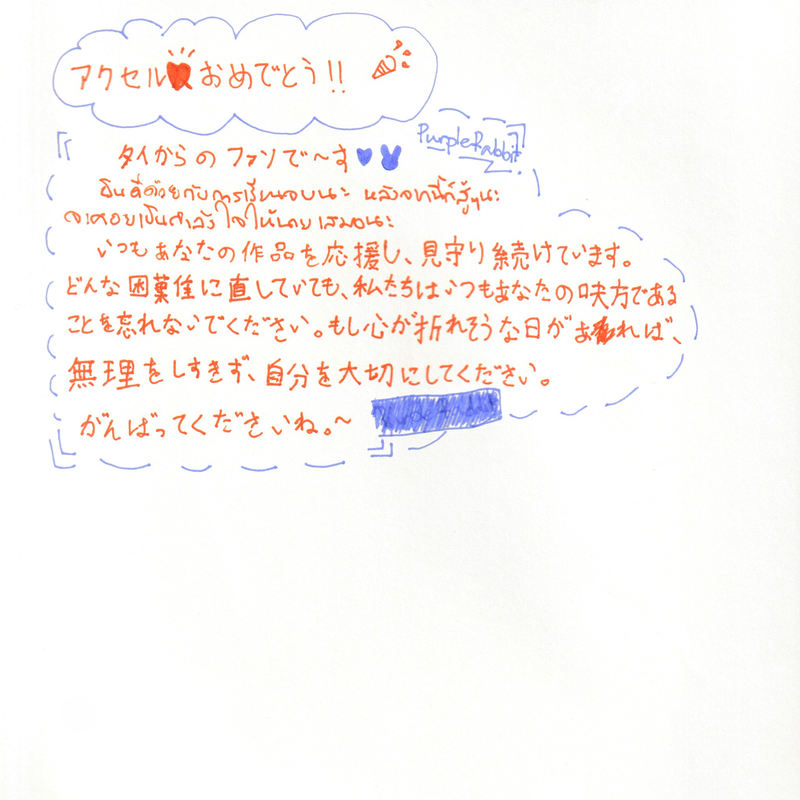 アクセル おめでとう!!
PurpleRabbit
『 タイからの ファンで〜す
ยินดีด้วยกับการเรียนจบนะ หลังจากนี้ก็สู้ๆนะ
จะคอยเป็นกำลังใจให้นายเสมอนะ
いつもあなたの作品を応援し、見守り続けています。
どんな困菓隹に直していても、私たちはいつもあなたの味方である
ことを忘れないでください。もし心が折れそうな日があれば、
無理をしすきず、自分を大切にしてください。
がんばってくださいね。~ 』